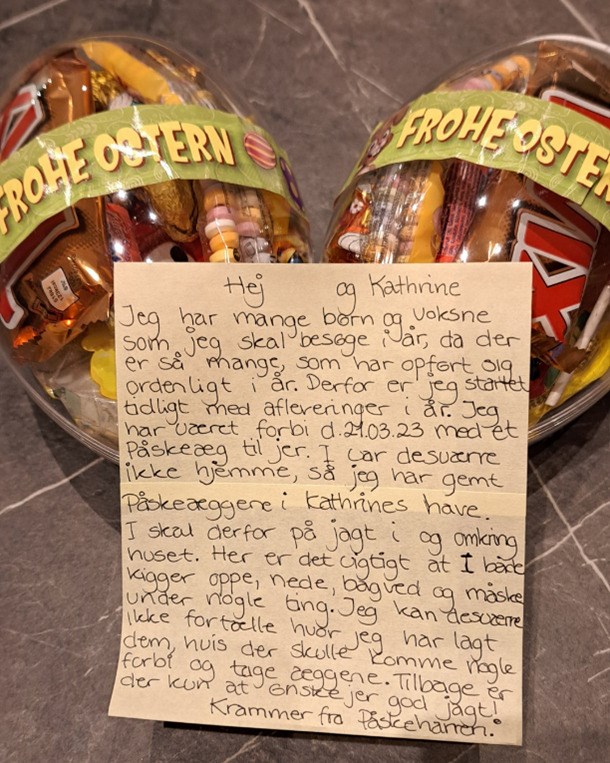 FROHE OSTERN
FROHE OSTER
Hej og Kathrine
Jeg har mange børn og voksne
som jeg skal besøge i år, da der
er så mange, som har opført sig
ordenligt i år. Derfor er jeg startet
tidligt med afleveringer i år. Jeg
har været forbi d. 21.03.23 med et
Påskeæg til jer. I var desværre
ikke hjemme, så jeg har gemt
Påskeæggene i Kathrines have.
I skal derfor på jagt i og omkring
huset. Her er det vigtigt at I både
kigger oppe, nede, bagved og måske
under nogle ting. Jeg kan desværre
ikke fortælle hvor jeg har lagt
dem, hvis der skulle komme nogle
forbi og tage æggene. Tilbage er
der kun at ønske jer god jagt!
Krammer fra Påskeharren.